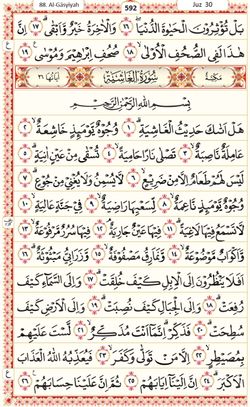 88. Al-Gāsyiyah 592 Juz 30
بَلْ تُؤْثِرُوْنَ الْحَيٰوةَ الدُّنْيَا ١٦ وَالْاٰخِرَةُ خَيْرٌ وَّاَبْقٰى ١٧ اِنَّ
هٰذَا لَفِى الصُّحُفِ الْاُوْلٰى ١٨ صُحُفِ اِبْرٰهِيْمَ وَمُوْسٰى ١٩
مَكِّيَّةٌ سُوْرَةُ الْغَاشِيَةِ اٰيَاتُهَا ٢٦
بِسْمِ اللّٰهِ الرَّحْمٰنِ الرَّحِيْمِ
هَلْ اَتٰىكَ حَدِيْثُ الْغَاشِيَةِ ١ وُجُوْهٌ يَّوْمَئِذٍ خَاشِعَةٌ ٢
عَامِلَةٌ نَّاصِبَةٌ ٣ تَصْلٰى نَارًا حَامِيَةً ٤ تُسْقٰى مِنْ عَيْنٍ اٰنِيَةٍ ٥
لَيْسَ لَهُمْ طَعَامٌ اِلَّا مِنْ ضَرِيْعٍ ٦ لَّا يُسْمِنُ وَلَا يُغْنِيْ مِنْ جُوْعٍ ٧
وُجُوْهٌ يَّوْمَئِذٍ نَّاعِمَةٌ ٨ لِّسَعْيِهَا رَاضِيَةٌ ٩ فِيْ جَنَّةٍ عَالِيَةٍ ١٠
لَّا تَسْمَعُ فِيْهَا لَاغِيَةً ١١ فِيْهَا عَيْنٌ جَارِيَةٌ ١٢ فِيْهَا سُرُرٌ مَّرْفُوْعَةٌ ١٣
وَّاَكْوَابٌ مَّوْضُوْعَةٌ ١٤ وَّنَمَارِقُ مَصْفُوْفَةٌ ١٥ وَّزَرَابِيُّ مَبْثُوْثَةٌ ١٦
اَفَلَا يَنْظُرُوْنَ اِلَى الْاِبِلِ كَيْفَ خُلِقَتْ ١٧ وَاِلَى السَّمَاۤءِ كَيْفَ
رُفِعَتْ ١٨ وَاِلَى الْجِبَالِ كَيْفَ نُصِبَتْ ١٩ وَاِلَى الْاَرْضِ كَيْفَ
سُطِحَتْ ٢٠ فَذَكِّرْ اِنَّمَآ اَنْتَ مُذَكِّرٌ ٢١ لَسْتَ عَلَيْهِمْ
بِمُصَيْطِرٍ ٢٢ اِلَّا مَنْ تَوَلّٰى وَكَفَرَ ٢٣ فَيُعَذِّبُهُ اللّٰهُ الْعَذَابَ
الْاَكْبَرَ ٢٤ اِنَّ اِلَيْنَآ اِيَابَهُمْ ٢٥ ثُمَّ اِنَّ عَلَيْنَا حِسَابَهُمْ ٢٦